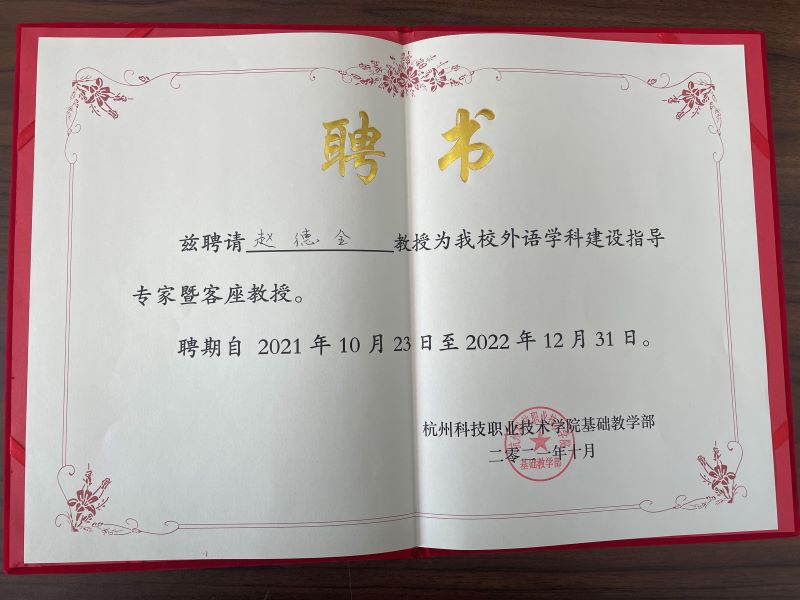 聘书
兹聘请 赵德全 教授为我校外语学科建设指导
专家暨客座教授。
聘期自 2021 年 10 月 23 日至 2022 年 12 月 31 日。
杭州科技职业技术学院基础教学部
二零二一年十月
杭州科技职业技术学院
基础教学部